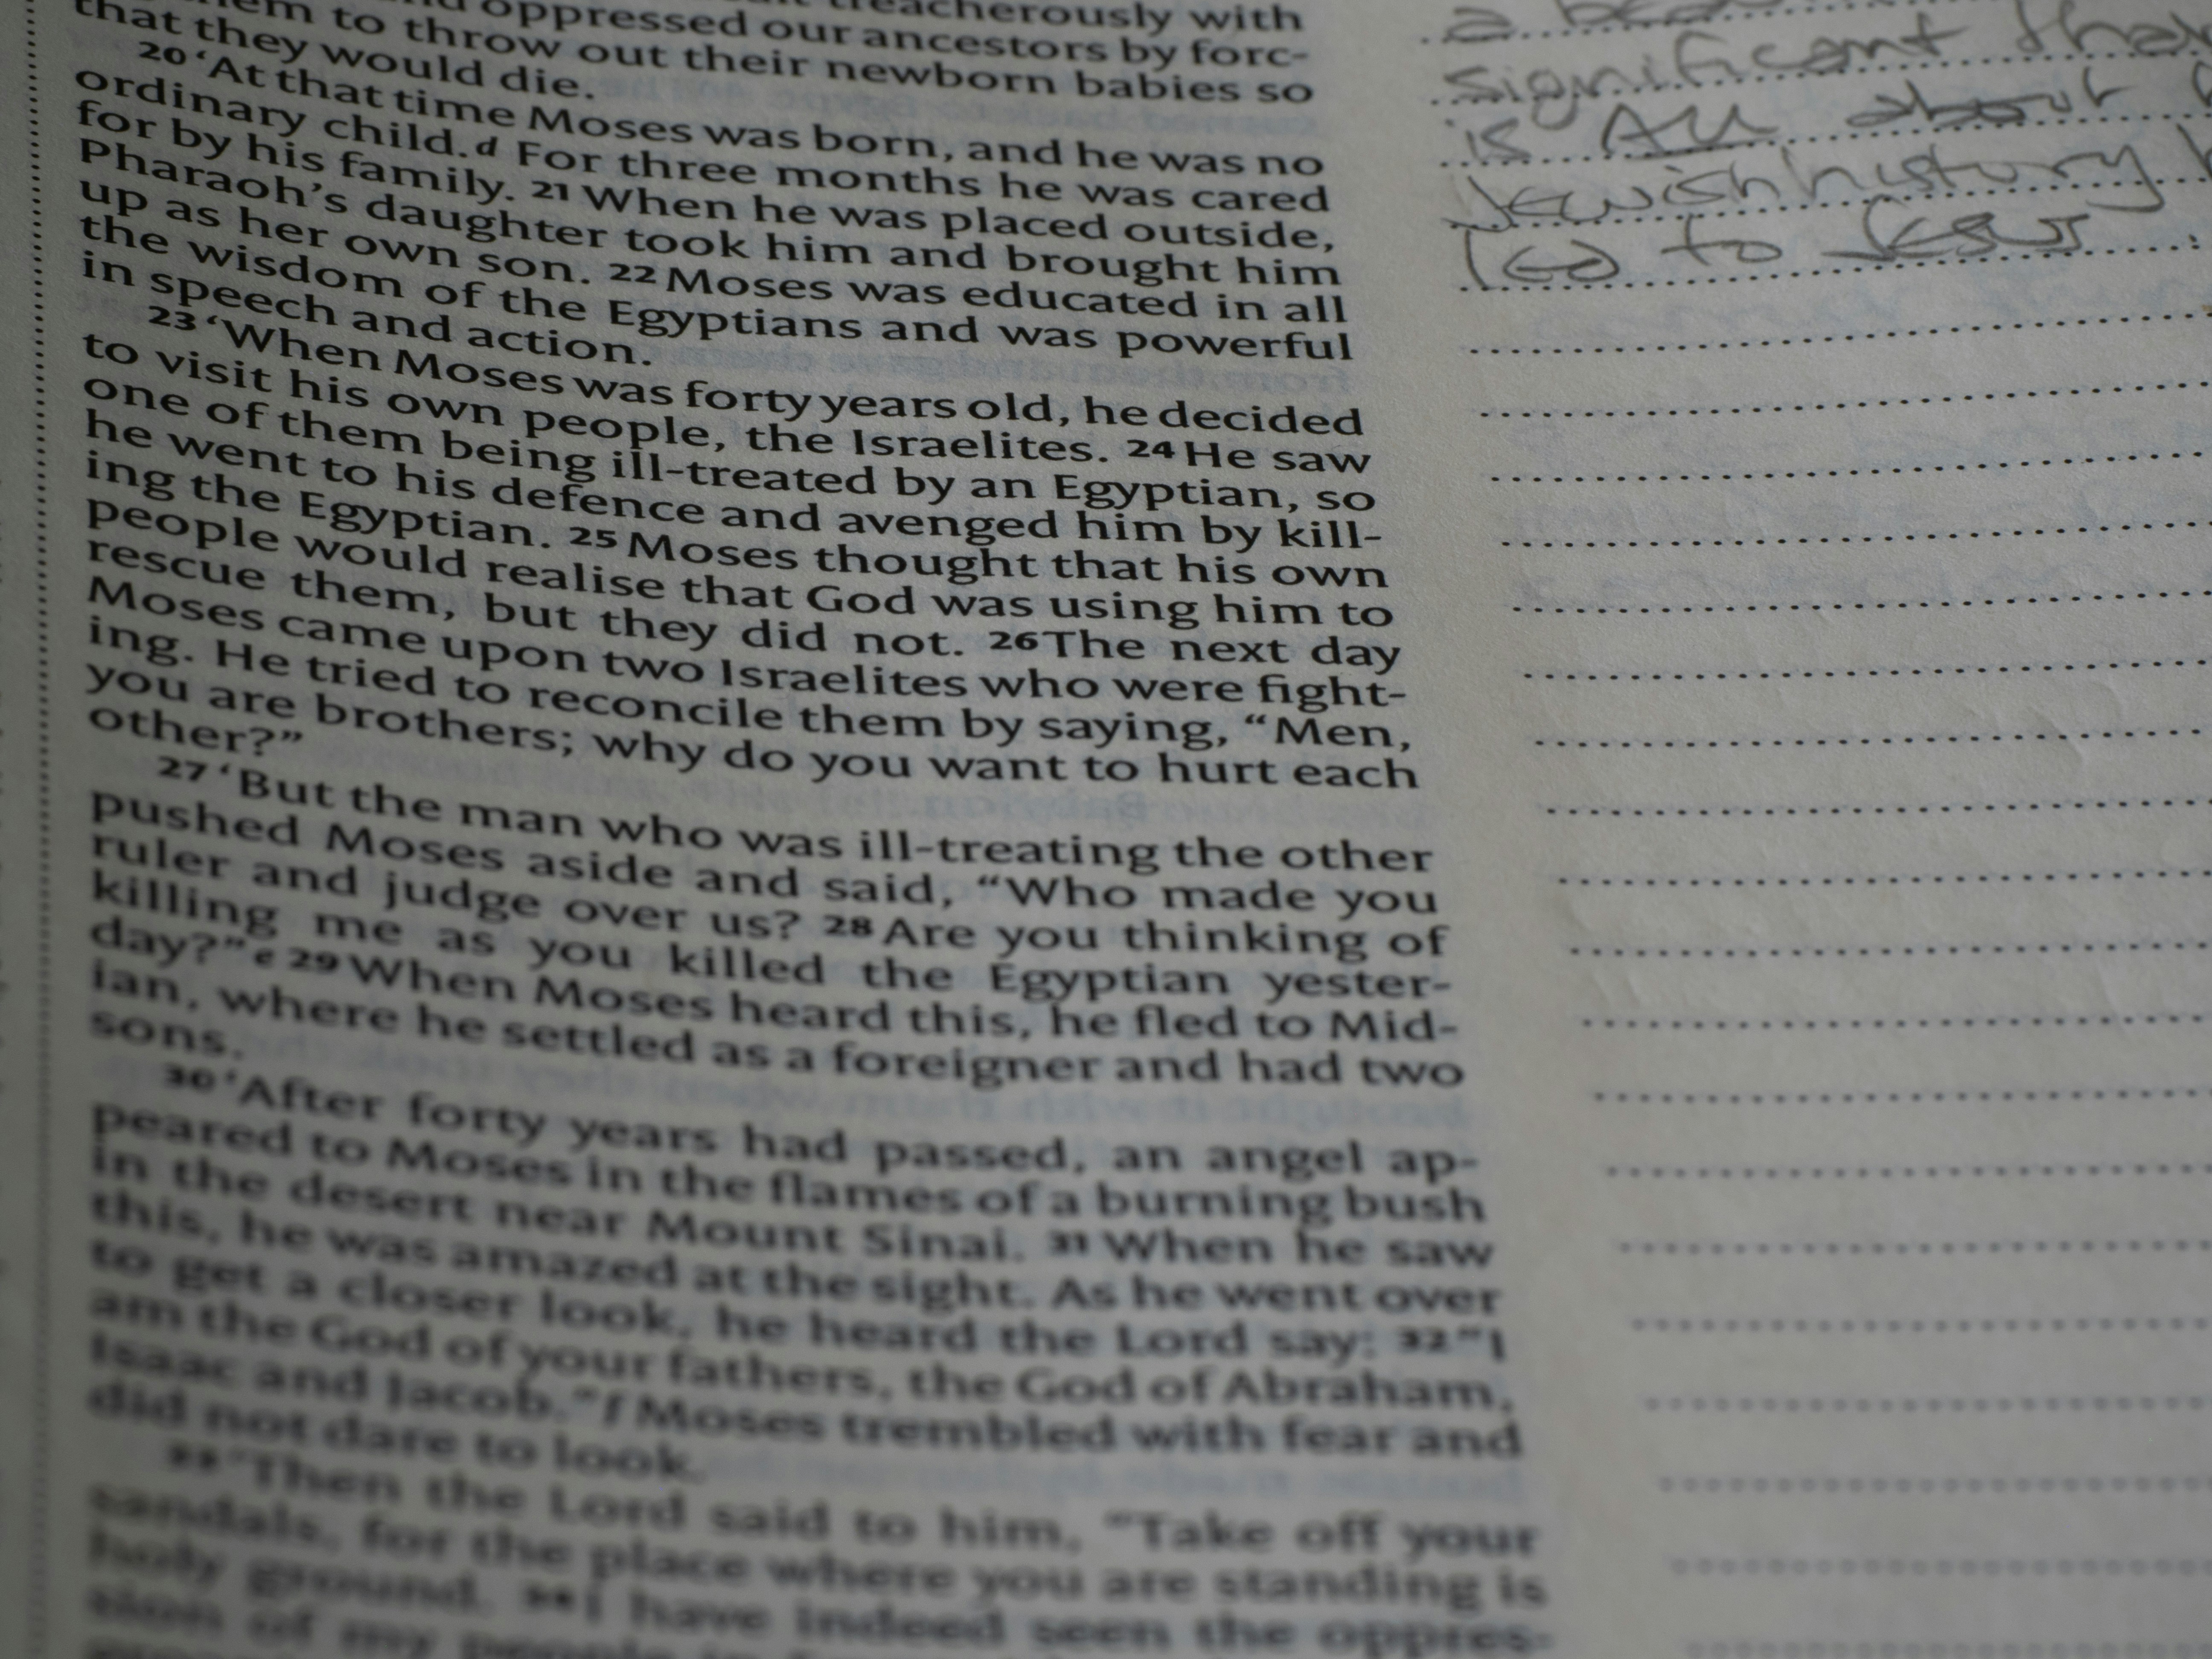 treacherously with
oppressed our ancestors by forc-
them to throw out their newborn babies so
that they would die.
20 ‘At that time Moses was born, and he was no
ordinary child.d For three months he was cared
for by his family. 21 When he was placed outside,
Pharaoh’s daughter took him and brought him
up as her own son. 22 Moses was educated in all
the wisdom of the Egyptians and was powerful
in speech and action.
23 ‘When Moses was forty years old, he decided
to visit his own people, the Israelites. 24 He saw
one of them being ill-treated by an Egyptian, so
he went to his defence and avenged him by kill-
ing the Egyptian. 25 Moses thought that his own
people would realise that God was using him to
rescue them, but they did not. 26 The next day
Moses came upon two Israelites who were fight-
ing. He tried to reconcile them by saying, “Men,
you are brothers; why do you want to hurt each
other?”
27 ‘But the man who was ill-treating the other
pushed Moses aside and said, “Who made you
ruler and judge over us? 28 Are you thinking of
killing me as you killed the Egyptian yester-
day?”e 29 When Moses heard this, he fled to Mid-
ian, where he settled as a foreigner and had two
sons.
30 ‘After forty years had passed, an angel ap-
peared to Moses in the flames of a burning bush
in the desert near Mount Sinai. 31 When he saw
this, he was amazed at the sight. As he went over
to get a closer look, he heard the Lord say: 32 “I
am the God of your fathers, the God of Abraham,
Isaac and Jacob.”f Moses trembled with fear and
did not dare to look.
33 ‘Then the Lord said to him, “Take off your
sandals, for the place where you are standing is
holy ground. 34 I have indeed seen the oppres-
sion of my people in
a
significant that
is All about
Jewish history
led to Jesus